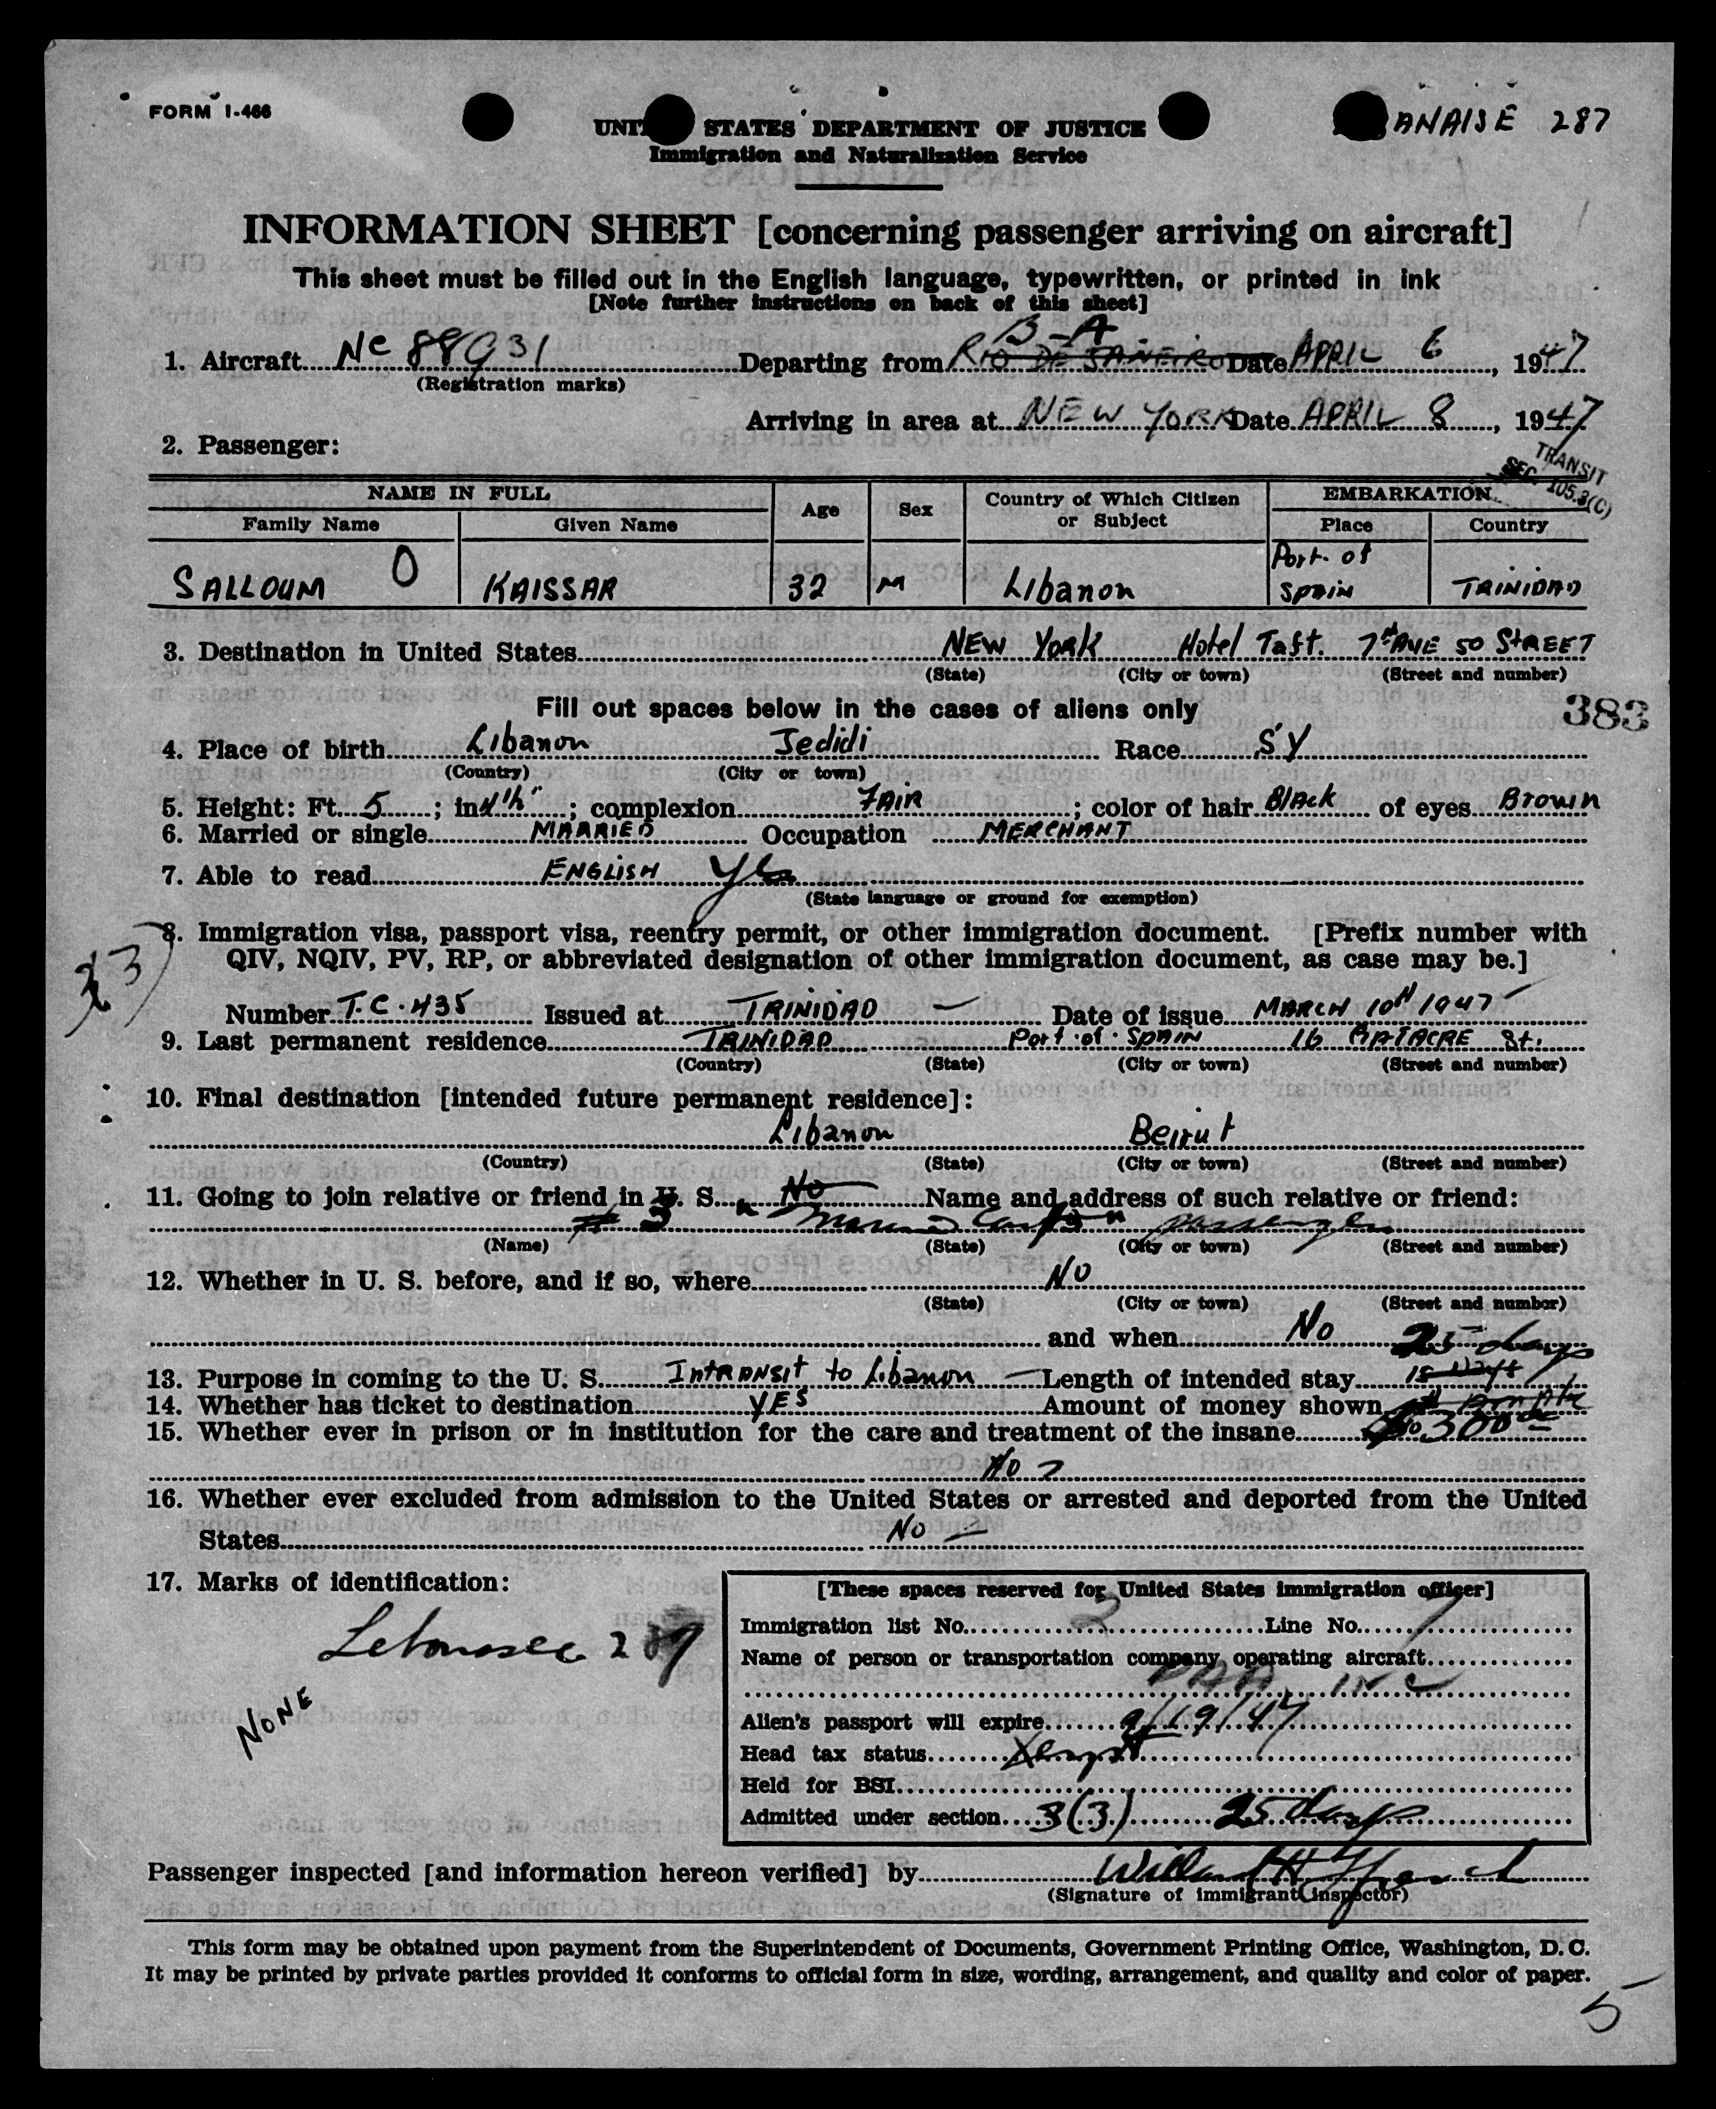 FORM I-466
ANAISE 287
STATES DEPARTMENT OF JUSTICE
Immigration and Naturalization Service
INFORMATION SHEET [concerning passenger arriving on aircraft]
This sheet must be filled out in the English language, typewritten, or printed in ink
[Note further instructions on back of this sheet]
B-A
1. Aircraft NC 88931 Departing from RIO DE JANEIRO Date APRIL 6, 1947
(Registration marks)
Arriving in area at NEW YORK Date APRIL 8, 1947
2. Passenger:
TRANSIT
SEC. 105.3(C)
NAME IN FULL Age Sex Country of Which Citizen or Subject EMBARKATION
Family Name Given Name Place Country
SALLOUM O KAISSAR 32 M Libanon Port of SPAIN TRINIDAD
3. Destination in United States NEW YORK Hotel Taft. 7th AVE 50 STREET
(State) (City or town) (Street and number)
Fill out spaces below in the cases of aliens only
383
4. Place of birth Libanon Jedidi Race SY
(Country) (City or town)
5. Height: Ft. 5; in 4½"; complexion FAIR; color of hair Black of eyes Brown
6. Married or single MARRIED Occupation MERCHANT
7. Able to read ENGLISH Yes
(State language or ground for exemption)
8. Immigration visa, passport visa, reentry permit, or other immigration document. [Prefix number with
QIV, NQIV, PV, RP, or abbreviated designation of other immigration document, as case may be.]
Number T.C. 435 Issued at TRINIDAD Date of issue MARCH 10th 1947
9. Last permanent residence TRINIDAD Port of SPAIN 16 St.
(Country) (State) (City or town) (Street and number)
10. Final destination [intended future permanent residence]:
Libanon Beirut
(Country) (State) (City or town) (Street and number)
11. Going to join relative or friend in U. S. No Name and address of such relative or friend:
# 3 passenger
(Name) (State) (City or town) (Street and number)
12. Whether in U. S. before, and if so, where NO
(State) (City or town) (Street and number)
and when No
25 days
13. Purpose in coming to the U. S. INTRANSIT to Libanon Length of intended stay 15 Days
14. Whether has ticket to destination YES Amount of money shown
15. Whether ever in prison or in institution for the care and treatment of the insane
300
No
16. Whether ever excluded from admission to the United States or arrested and deported from the United
States No
17. Marks of identification:
NONE
[These spaces reserved for United States immigration officer]
Immigration list No. 2 Line No. 7
Name of person or transportation company operating aircraft
PAA INC
Alien's passport will expire 9/19/47
Head tax status Exempt
Held for BSI
Admitted under section 3(3) 25 days
Passenger inspected [and information hereon verified] by Willard H
(Signature of immigrant inspector)
This form may be obtained upon payment from the Superintendent of Documents, Government Printing Office, Washington, D. C.
It may be printed by private parties provided it conforms to official form in size, wording, arrangement, and quality and color of paper.
5